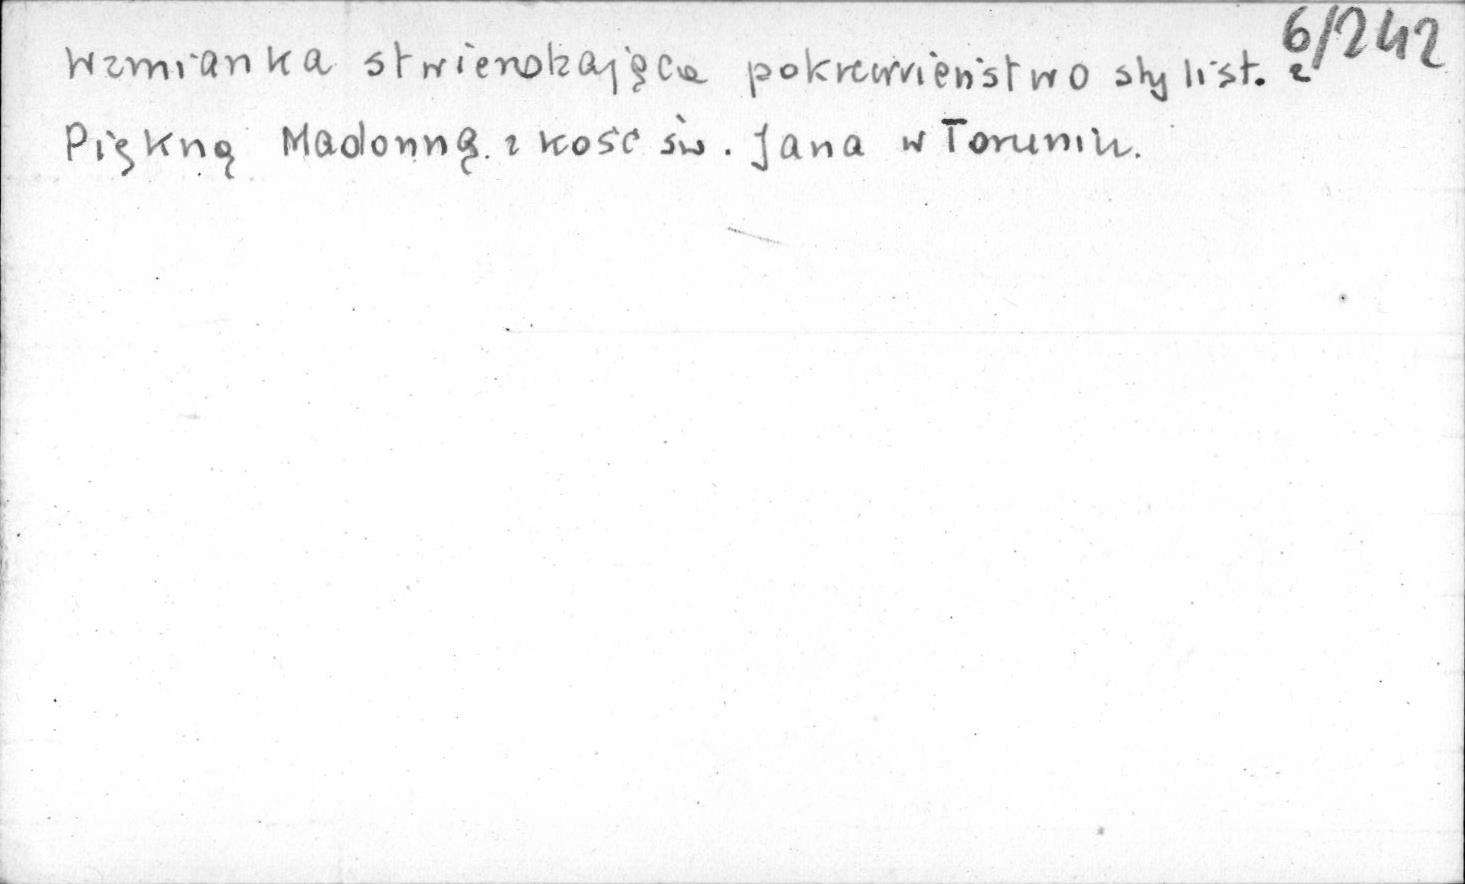 6/242
Wzmianka stwierdzająca pokrewieństwo stylist. z
Piękną Madonną z kość św. Jana w Toruniu.